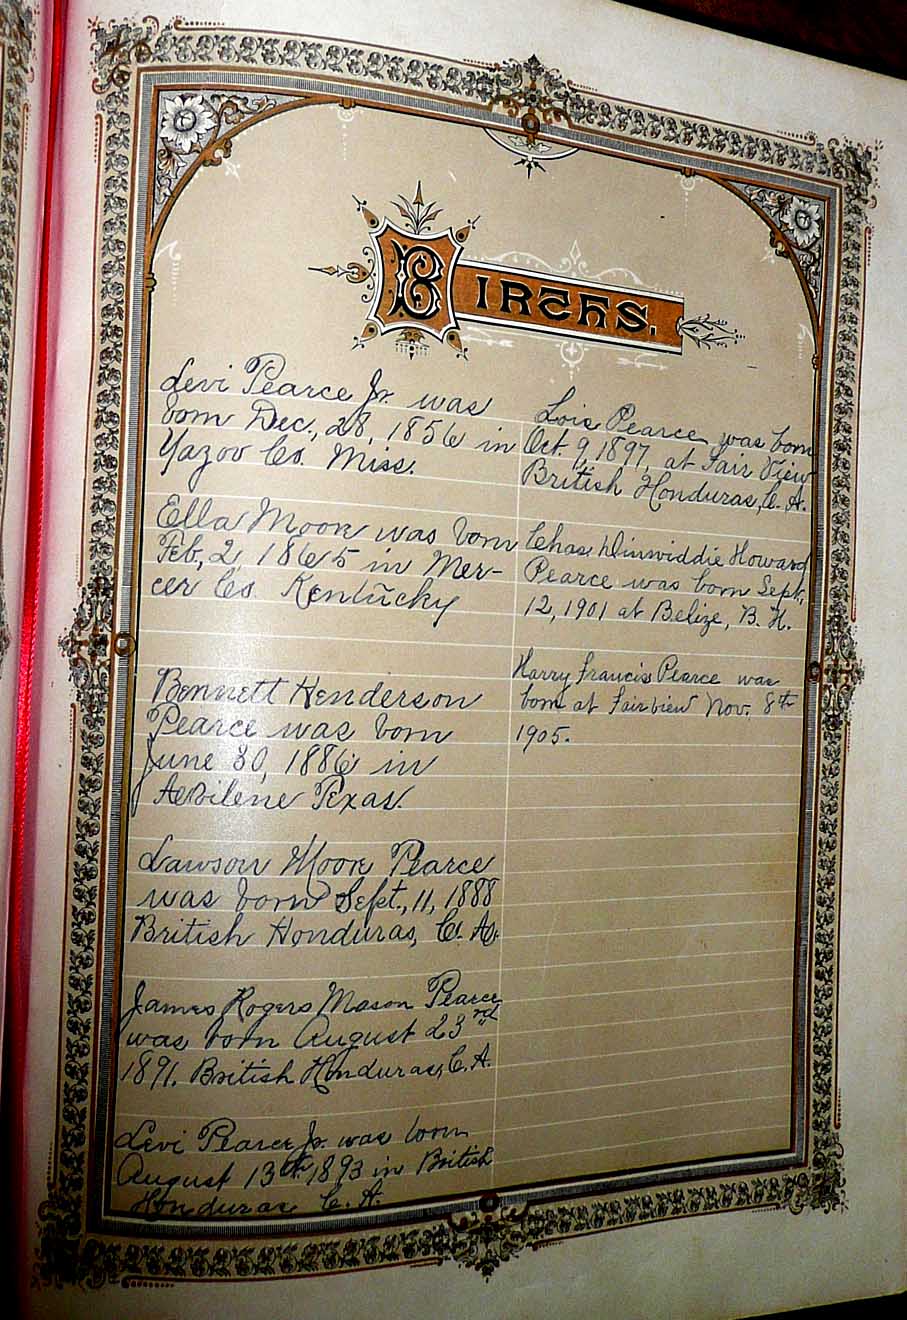 BIRTHS.
Levi Pearce Jr. was
born Dec. 28, 1856 in
Yazoo Co. Miss.
Ella Moore was born
Feb, 2, 1865 in Mer-
cer Co. Kentucky
Bennett Henderson
Pearce was born
June 30, 1886 in
Aebilene Texas
Lawson Moore Pearce
was born Sept., 11, 1888
British Honduras, C. A.
James Rogers Mason Pearce
was born August 23rd
1891. British Honduras, C. A.
Levi Pearce Jr. was born
August 13th, 1893 in British
Honduras C. A.
Lois Pearce was born
Oct. 9, 1897, at Fair View
British Honduras, C. A.
Chas. Dinwiddie Howard
Pearce was born Sept.
12, 1901 at Belize, B. H.
Harry Francis Pearce was
born at Fairview Nov. 8th
1905.